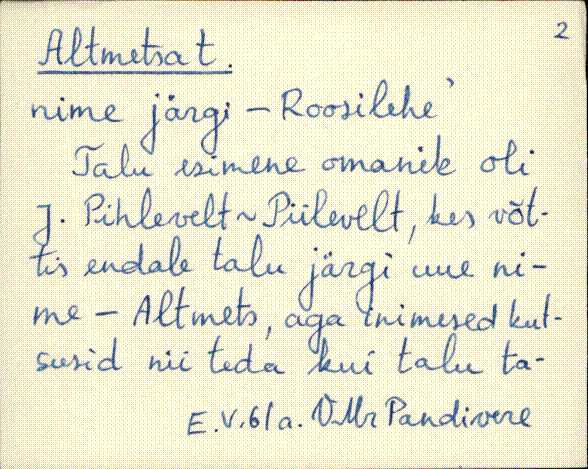 2
Altmetsa t.
nime järgi – Roosilehe'
Talu esimene omanik oli
J. Pihlevelt ~ Piilevelt, kes võt-
tis endale talu järgi uue ni-
me – Altmets, aga inimesed kut-
susid nii teda kui talu ta-
E.V. 61 a. V.Mr Pandivere